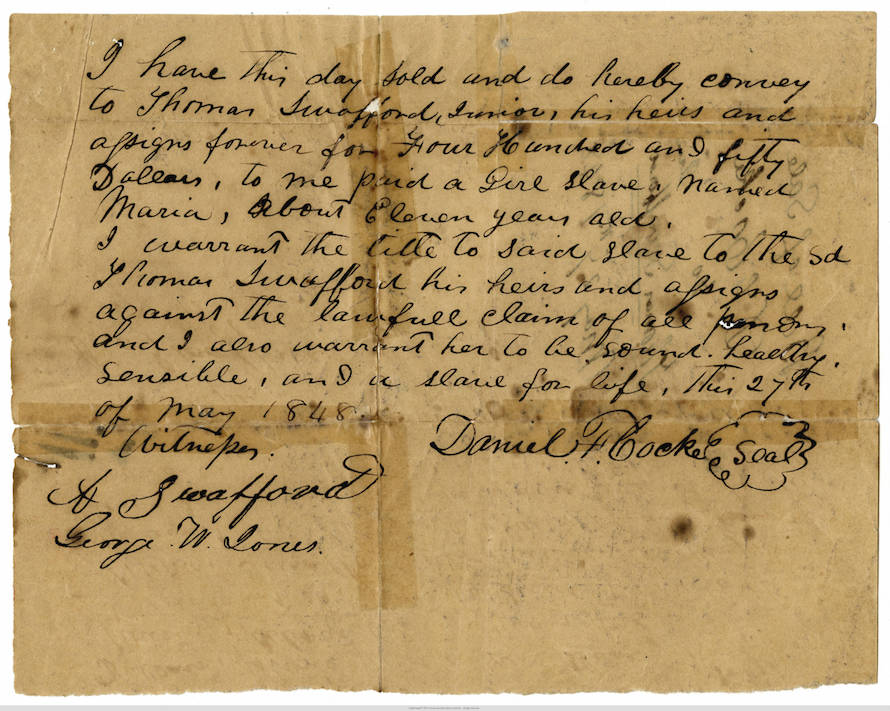 I have this day sold and do hereby convey
to Thomas Swafford, Junior, his heirs and
assigns forever for Four Hundred and fifty
Dollars, to me paid a Girl slave, named
Maria, about Eleven years old.
I warrant the title to said slave to the sd
Thomas Swafford his heirs and assigns
against the lawfull claim of all persons,
and I also warrant her to be sound. healthy.
sensible, and a slave for life, this 27th
of May 1848
Witness.
Daniel. F. Cocke Seal
A Swafford
George. W. Jones.